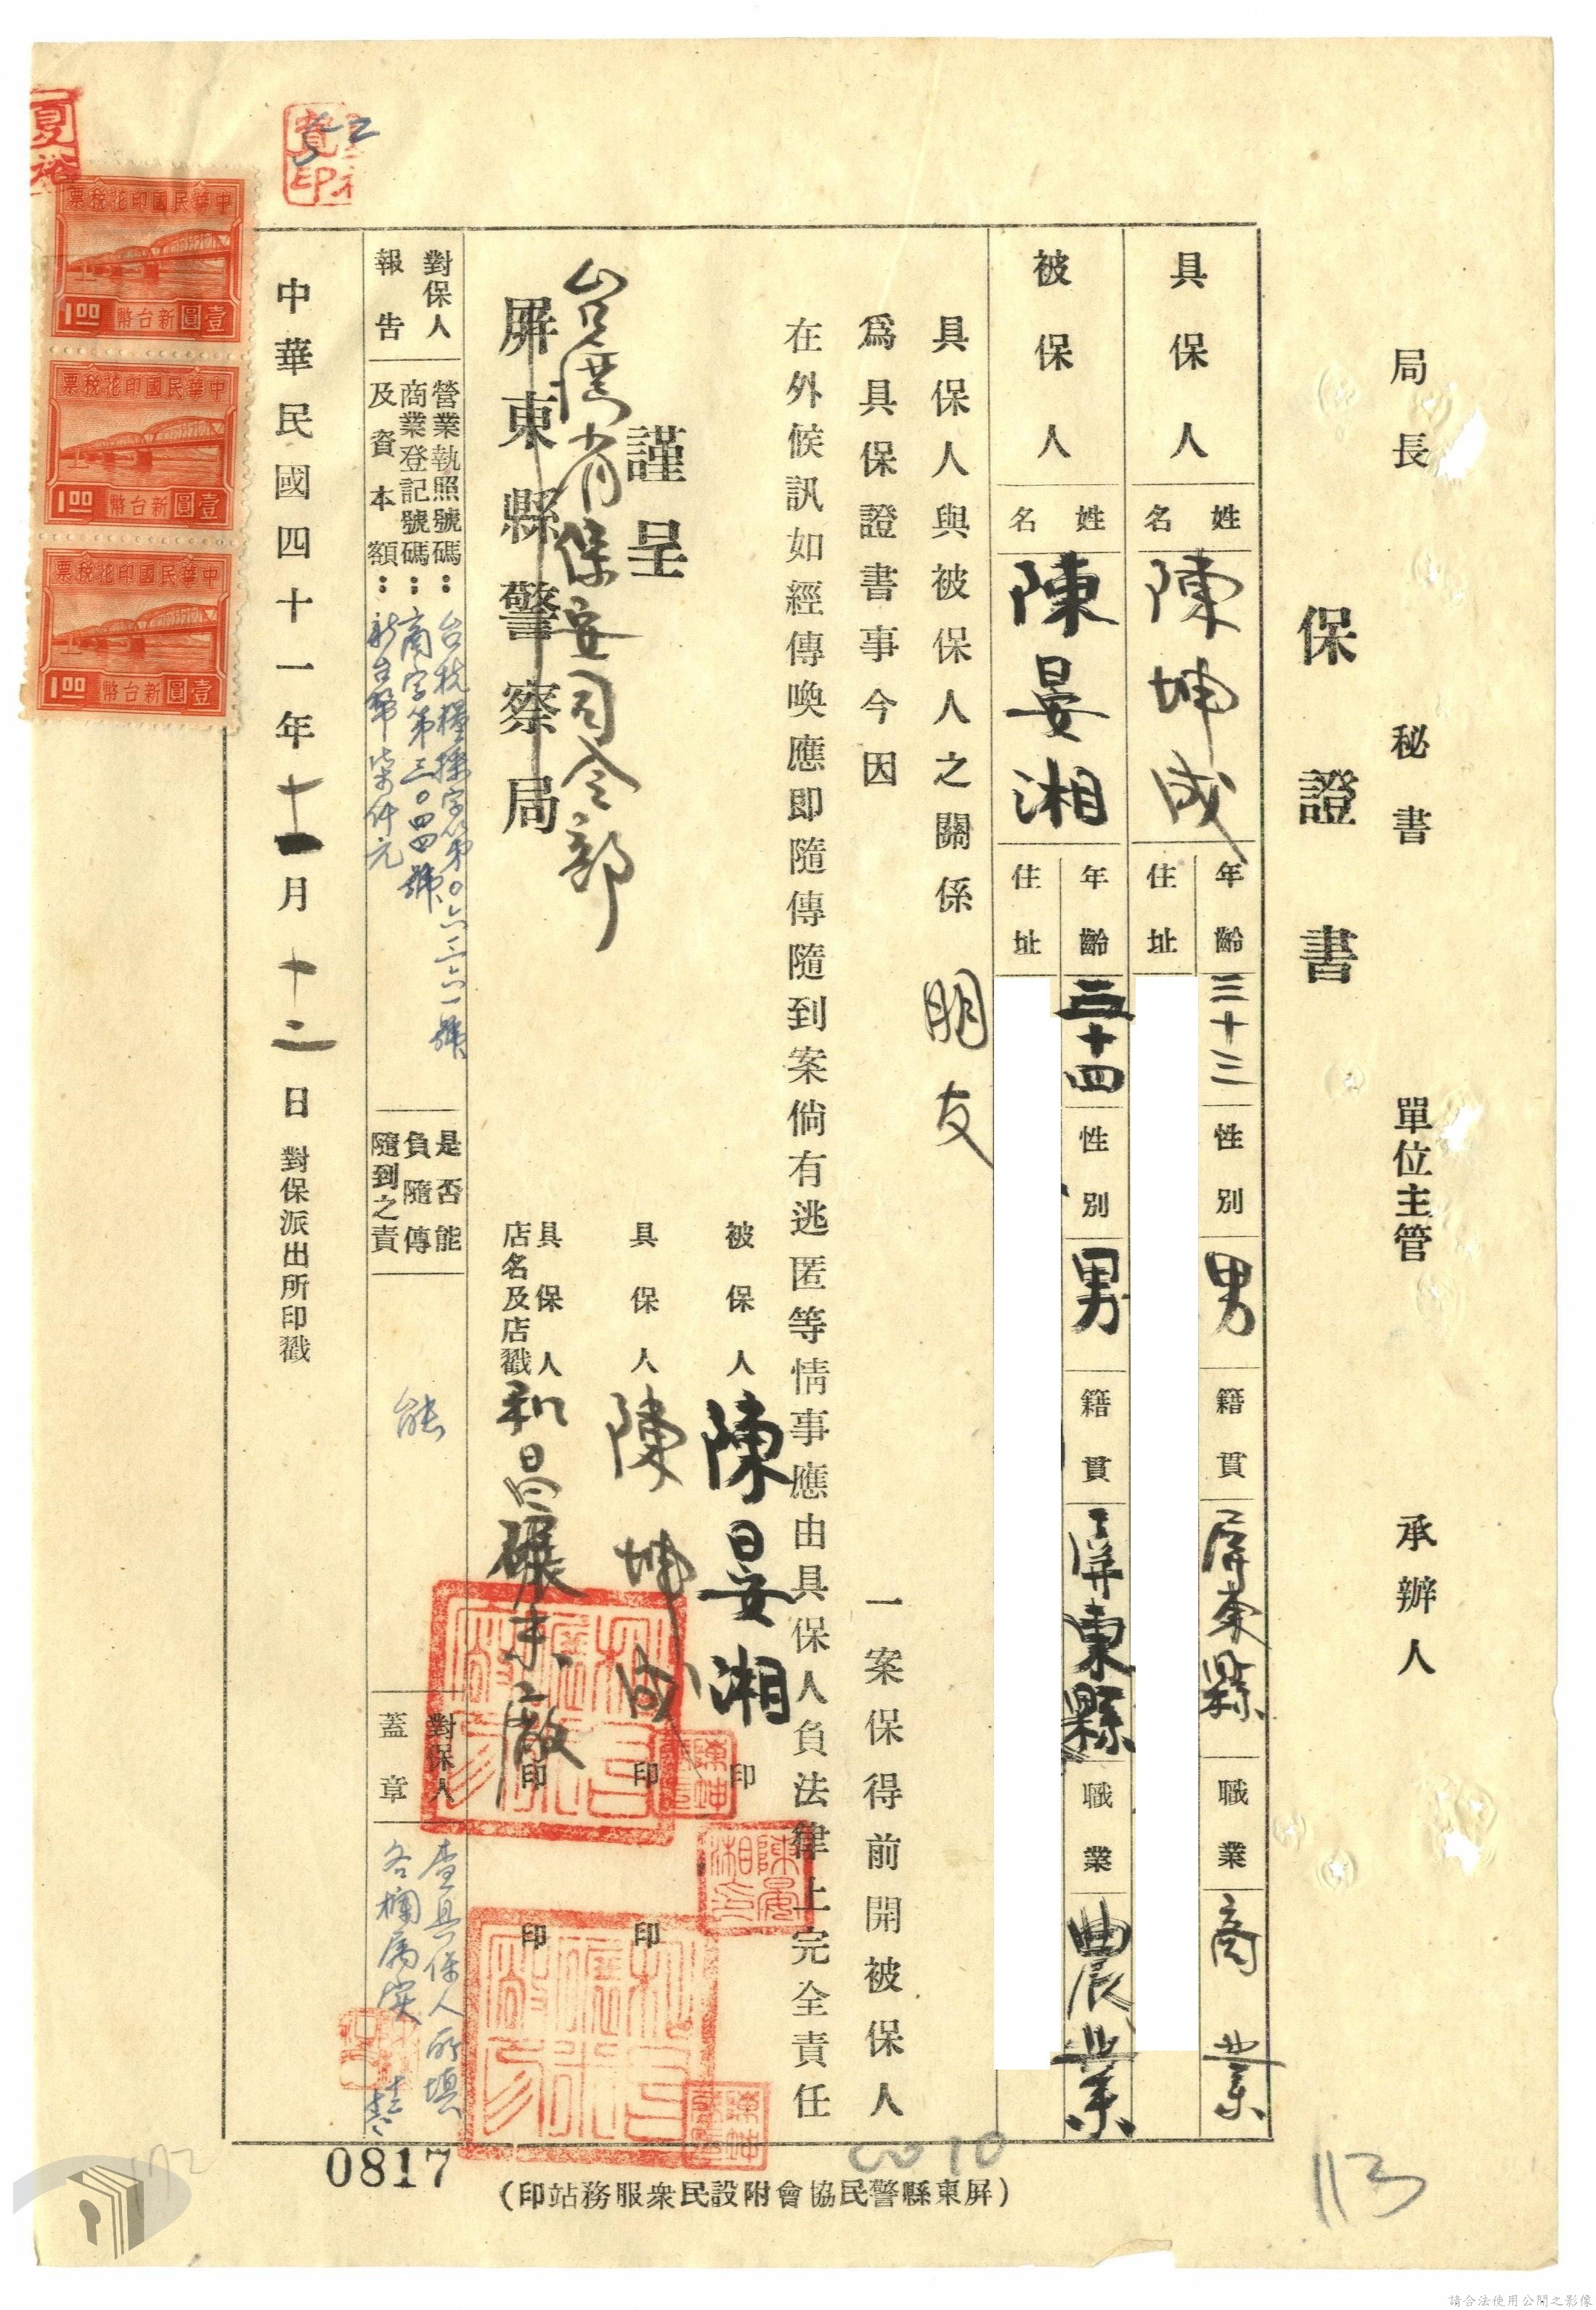 局長 秘書 單位主管 承辦人
保證書
具保人 姓名 陳坤成 年齡 三十三 性別 男 籍貫 屏東縣 職業 商業
住址
被保人 姓名 陳晏湘 年齡 三十四 性別 男 籍貫 屏東縣 職業 農業
住址
具保人與被保人之關係 朋友
為具保證書事今因 一案保得前開被保人
在外候訊如經傳喚應即隨傳隨到案倘有逃匿等情事應由具保人負法律上完全責任
謹呈
台灣省保安司令部
屏東縣警察局
被保人 陳晏湘 印
具保人 陳坤成 印 印
具保人店名及店戳 和昌碾米廠 印 印
對保人報告
營業執照號碼：台杭糧操字第〇六三六一號
商業登記號碼：商字第三〇四四號
及資本額：新台幣柒仟元
是否能負隨傳隨到之責 能
對保人蓋章 查具保人所填
各欄屬實
中華民國四十一年十一月十二日 對保派出所印戳
中華民國印花稅票
壹圓新台幣
1.00
中華民國印花稅票
壹圓新台幣
1.00
中華民國印花稅票
壹圓新台幣
1.00
夏裕
陳晏湘
陳坤
0817
0010
113
172
（屏東縣警民協會附設民衆服務站印）
請合法使用公開之影像